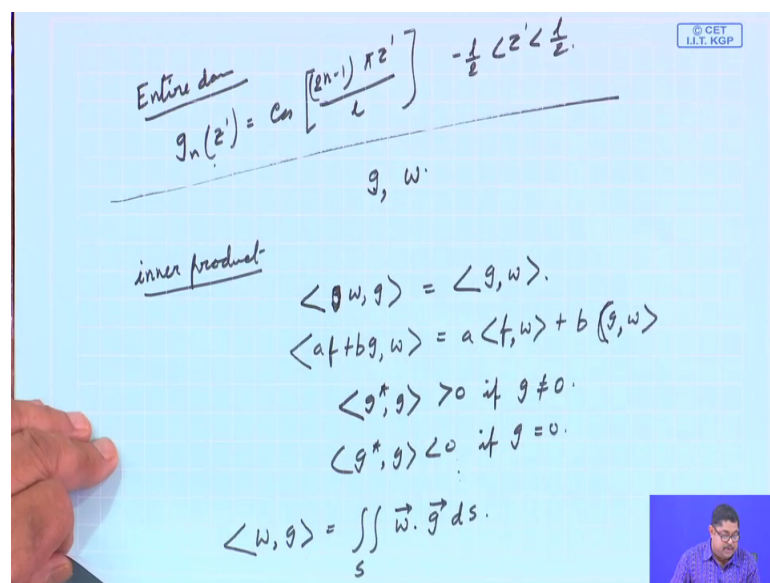 © CET
I.I.T. KGP
Entire dom
gₙ(z') = cos [(2n-1) π z' / l] -l/2 < z' < l/2.
g, w.
inner product
<w, g> = <g, w>.
<af+bg, w> = a <f, w> + b (g, w>
<g*, g> >0 if g ≠ 0.
<g*, g> <0 if g = 0.
<w, g> = ∬_S w⃗ . g⃗ ds.